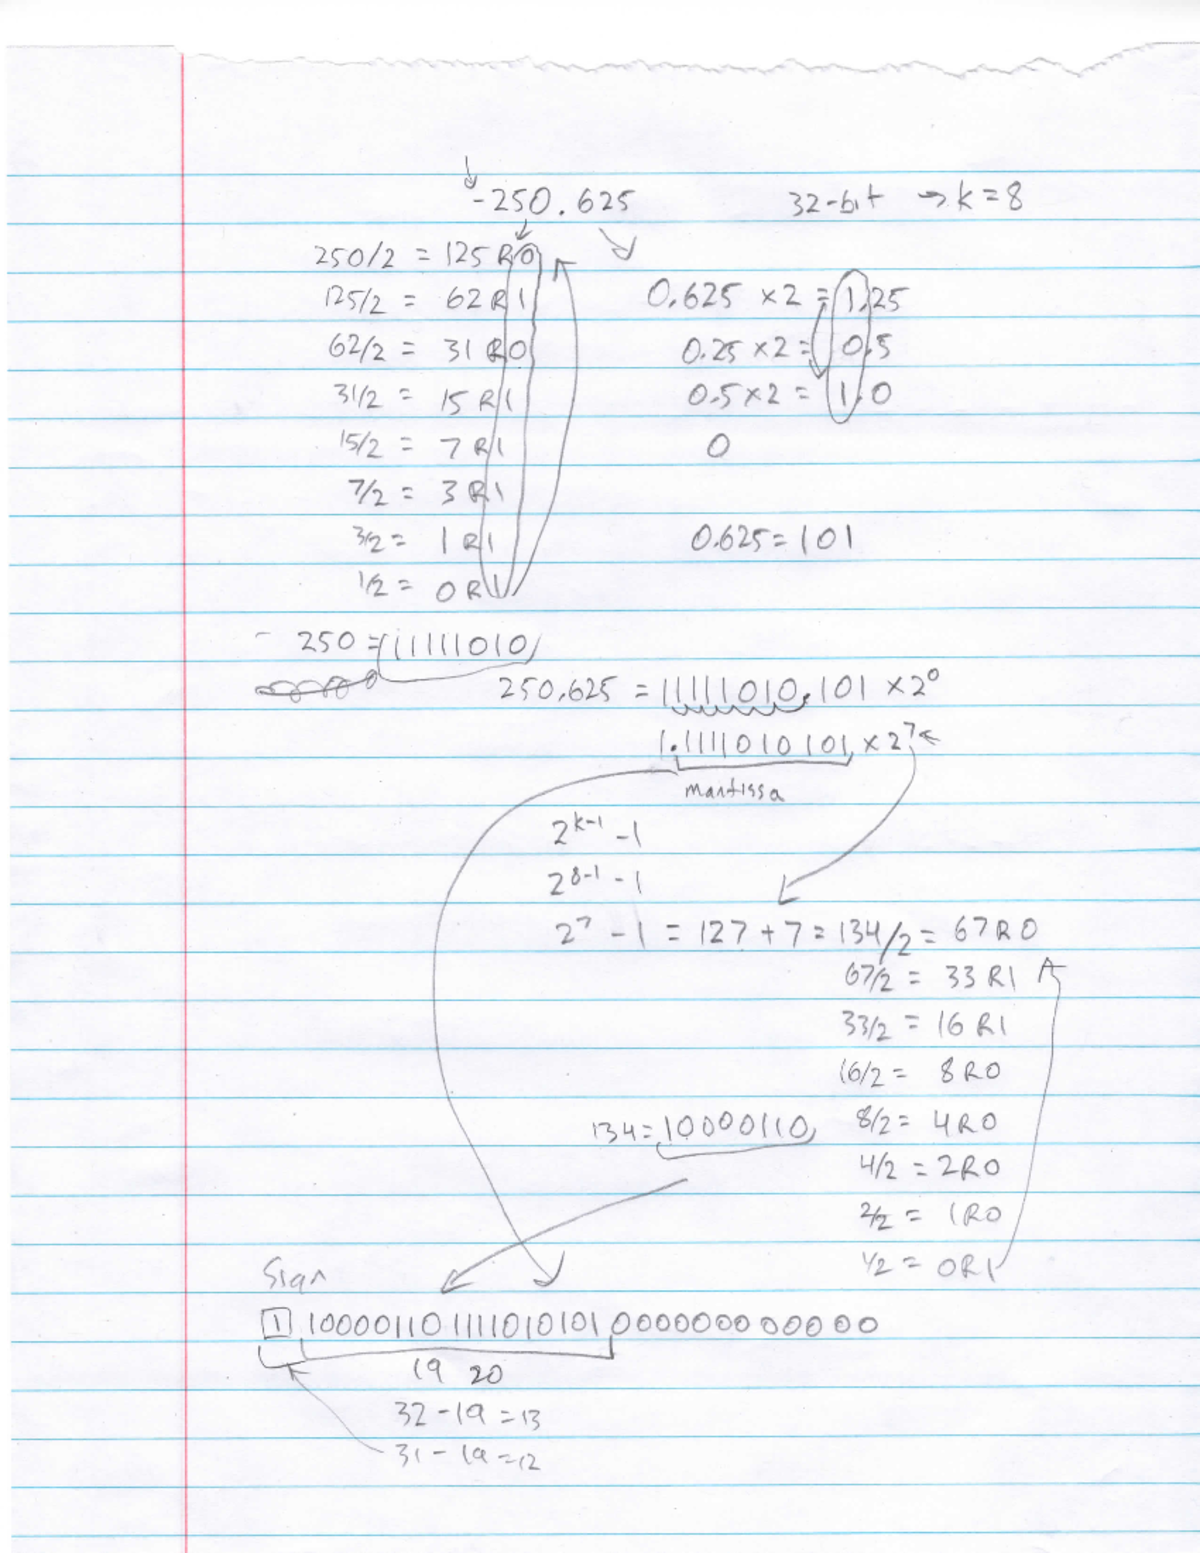 -250.625 32-bit → k=8
250/2 = 125 R 0
125/2 = 62 R 1 0.625 ×2 = 1.25
62/2 = 31 R 0 0.25 ×2 = 0.5
31/2 = 15 R 1 0.5 ×2 = 1.0
15/2 = 7 R 1 0
7/2 = 3 R 1
3/2 = 1 R 1 0.625 = 101
1/2 = 0 R 1
- 250 = 11111010
250.625 = 11111010.101 ×2⁰
1.1111010101 ×2⁷
mantissa
2ᵏ⁻¹ -1
2⁸⁻¹ -1
2⁷ -1 = 127 + 7 = 134/2 = 67 R 0
67/2 = 33 R1
33/2 = 16 R1
16/2 = 8 R0
134 = 10000110 8/2 = 4 R0
4/2 = 2 R0
2/2 = 1 R0
1/2 = 0 R1
Sign
1 100001101111010101 0000000000000
19 20
32 - 19 = 13
31 - 19 = 12